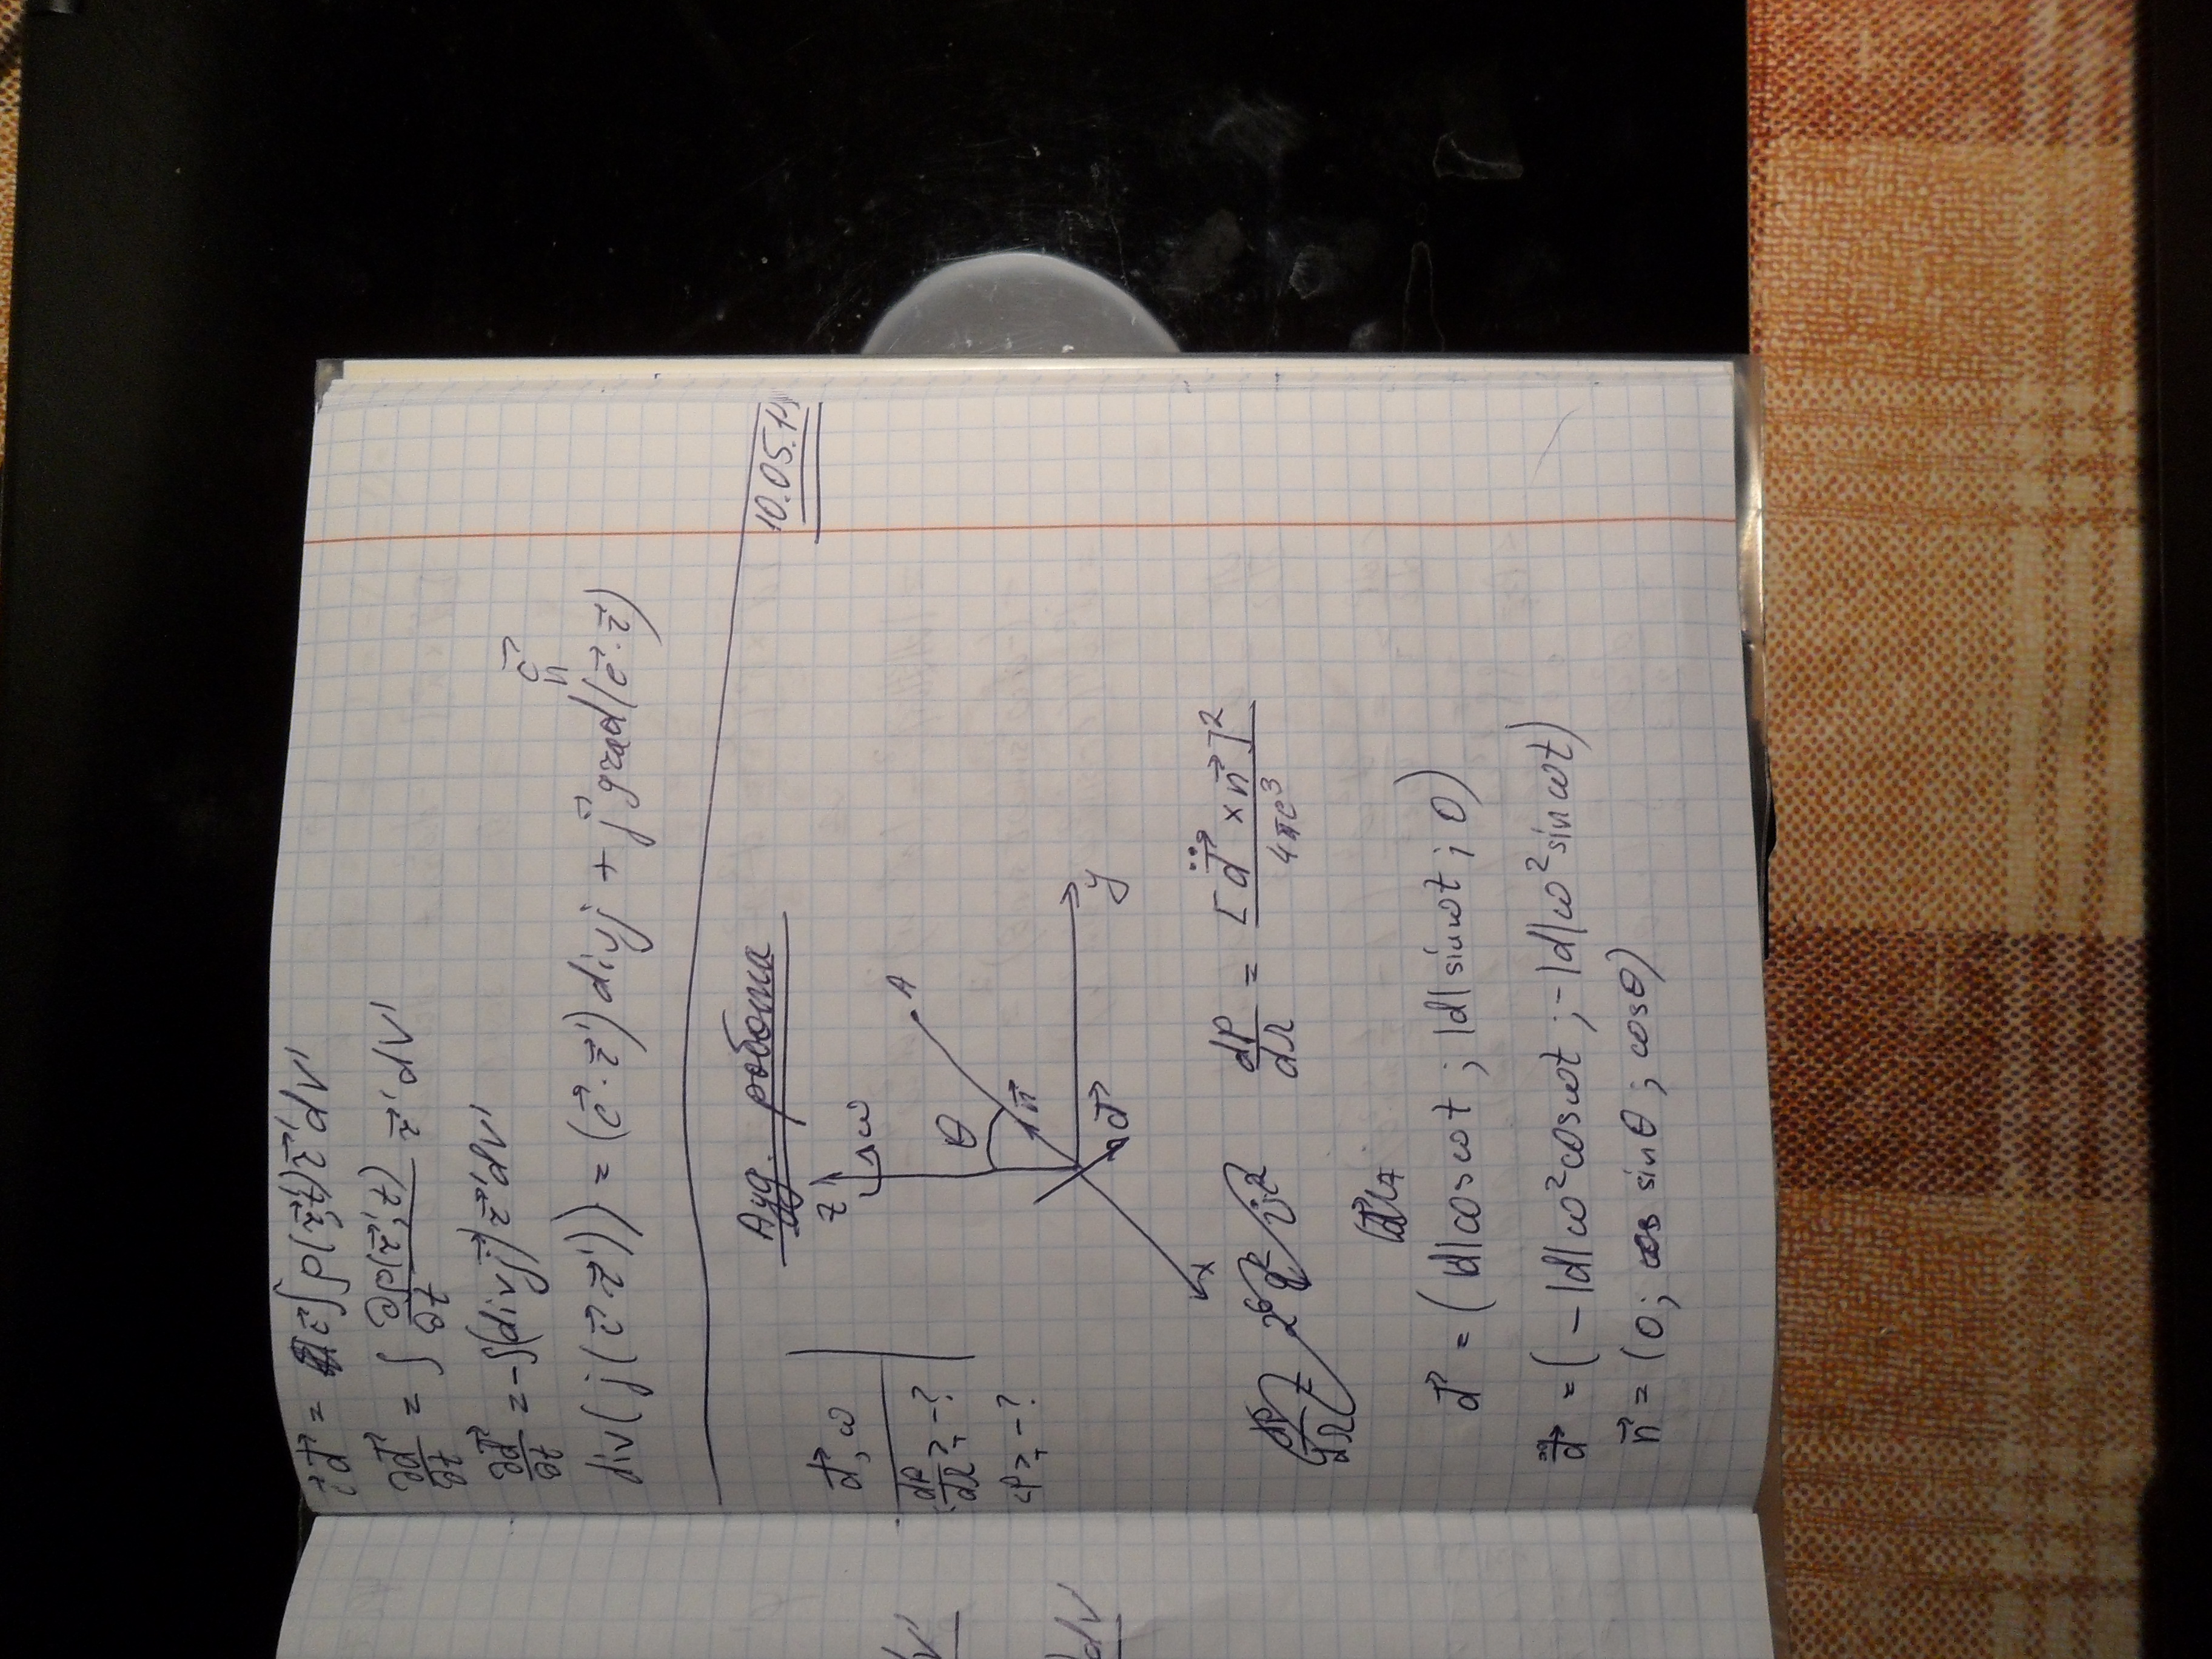 c⃗ d⃗ = c⃗ ∫ ρ(r⃗', t) r⃗' dV'
∂d⃗/∂t = ∫ ∂ρ(r⃗', t)/∂t r⃗' dV'
∂d⃗/∂t = -∫(div j⃗) r⃗' dV'
c⃗
||
div(j(c⃗·r⃗')) = (c⃗·r⃗') div j + j⃗ grad(c⃗·r⃗)
10.05.14
Ауд. робота
d⃗, ω
<dP/dΩ>_T - ?
<P>_T - ?
z ω
θ A
n⃗
d⃗ y
x
dP/dΩ = [d̈⃗ × n⃗]²/4πc³
d⃗ = (|d|cosωt; |d|sinωt; 0)
d̈⃗ = (-|d|ω²cosωt; -|d|ω²sinωt)
n⃗ = (0; sinθ; cosθ)
V'
dV